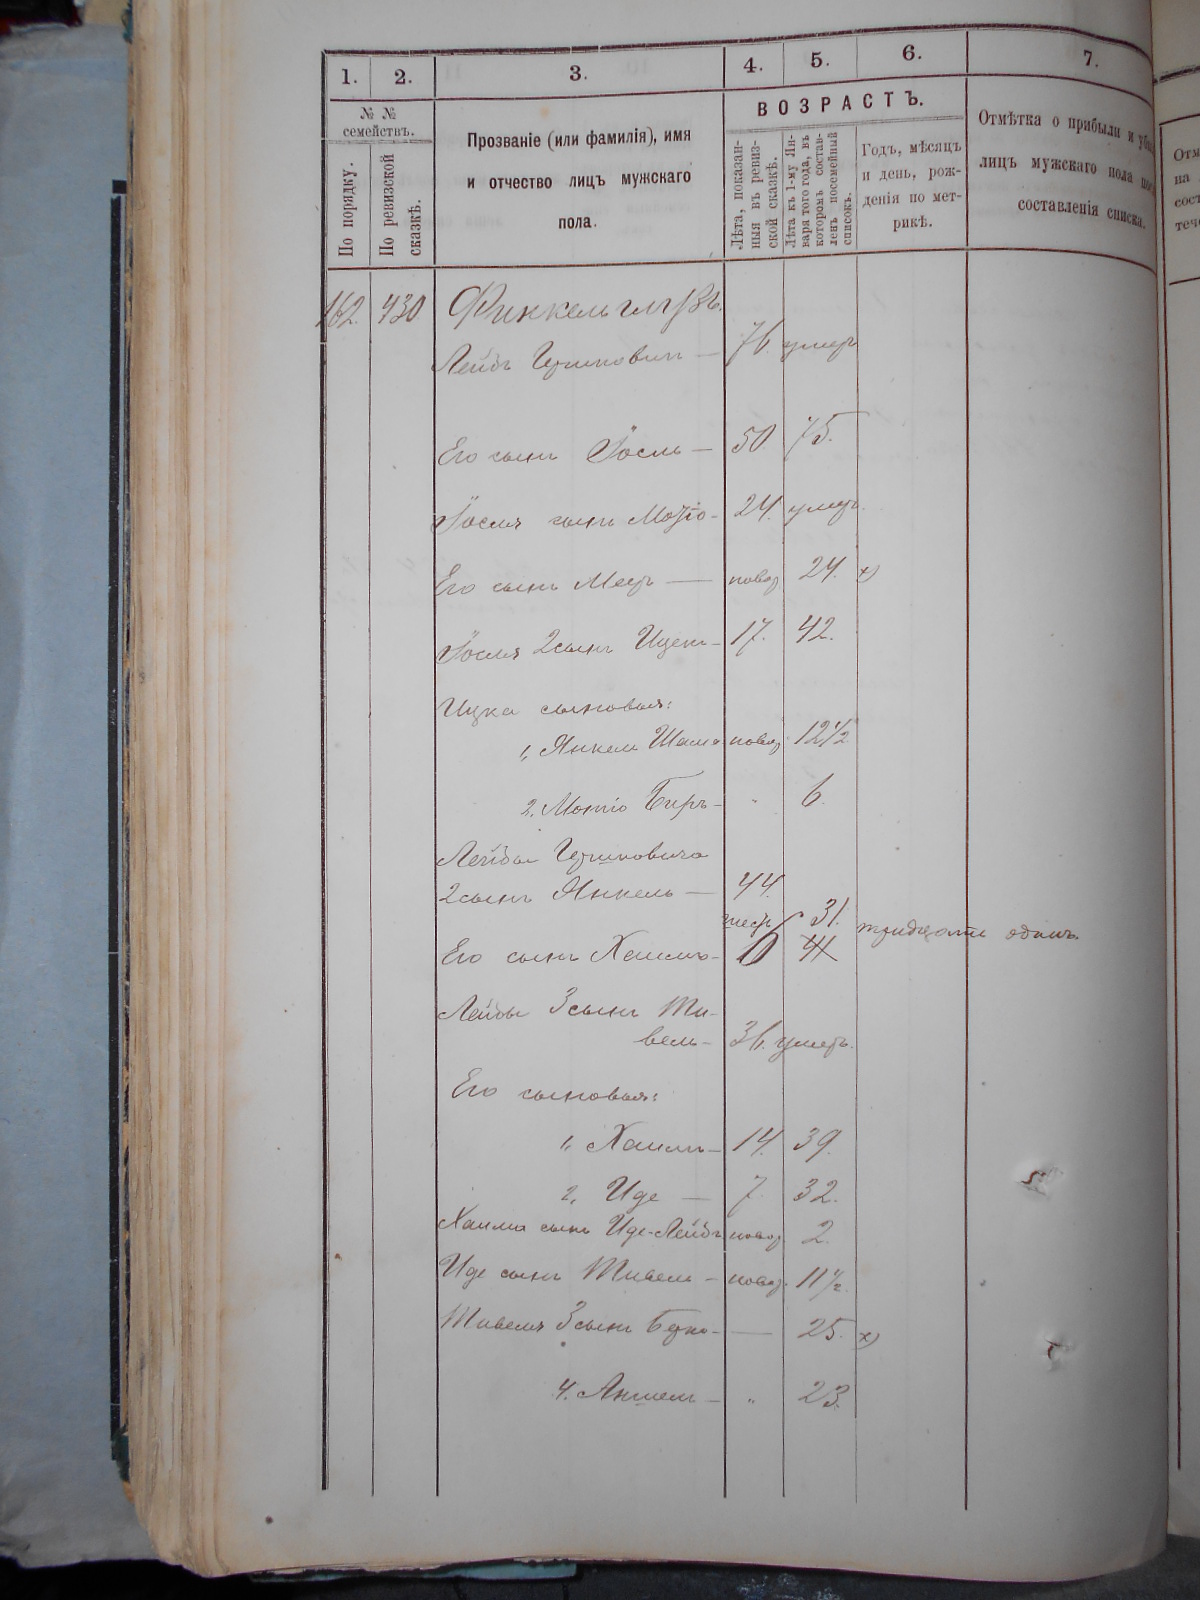 1. 2. 3. 4. 5. 6. 7.
№ №
семействъ.
По порядку.
По ревизской
сказкѣ.
Прозваніе (или фамилія), имя
и отчество лицъ мужскаго
пола.
ВОЗРАСТЪ.
Лѣта, показан-
ныя въ ревиз-
ской сказкѣ.
Лѣта къ 1-му Ян-
варя того года, въ
которомъ состав-
ленъ посемейный
списокъ.
Годъ, мѣсяцъ
и день, рож-
денія по мет-
рикѣ.
Отмѣтка о прибыли и
лицъ мужскаго пола
составленія списка.
162. 430 Финкельглузъ.
Лейбъ Гершковичъ — 76. умеръ
Его сынъ Іосль — 50 75.
Іосля сынъ — 24. умеръ.
Его сынъ Меер — новор 24. х)
Іосля 2 сынъ Ицекъ — 17. 42.
Ицка сыновья:
1, Янкель новор. 12 1/2
2. Мотіо Беръ — " 6.
Лейбы Гершковича
2 сынъ Янкель — 44.
шесть 31. тридцать одинъ.
Его сынъ Хаимъ — 6 41
Лейбы 3 сынъ Ти-
вель — 36. умеръ.
Его сыновья:
1, Хаимъ — 14. 39.
2, Иде — 7. 32.
Хаима сынъ Иде-Лейбъ новор 2.
Иде сынъ Тивель — новор. 11 1/2.
Тивеля 3 сынъ Берко — — 25. х)
4. Аншель — " 23.